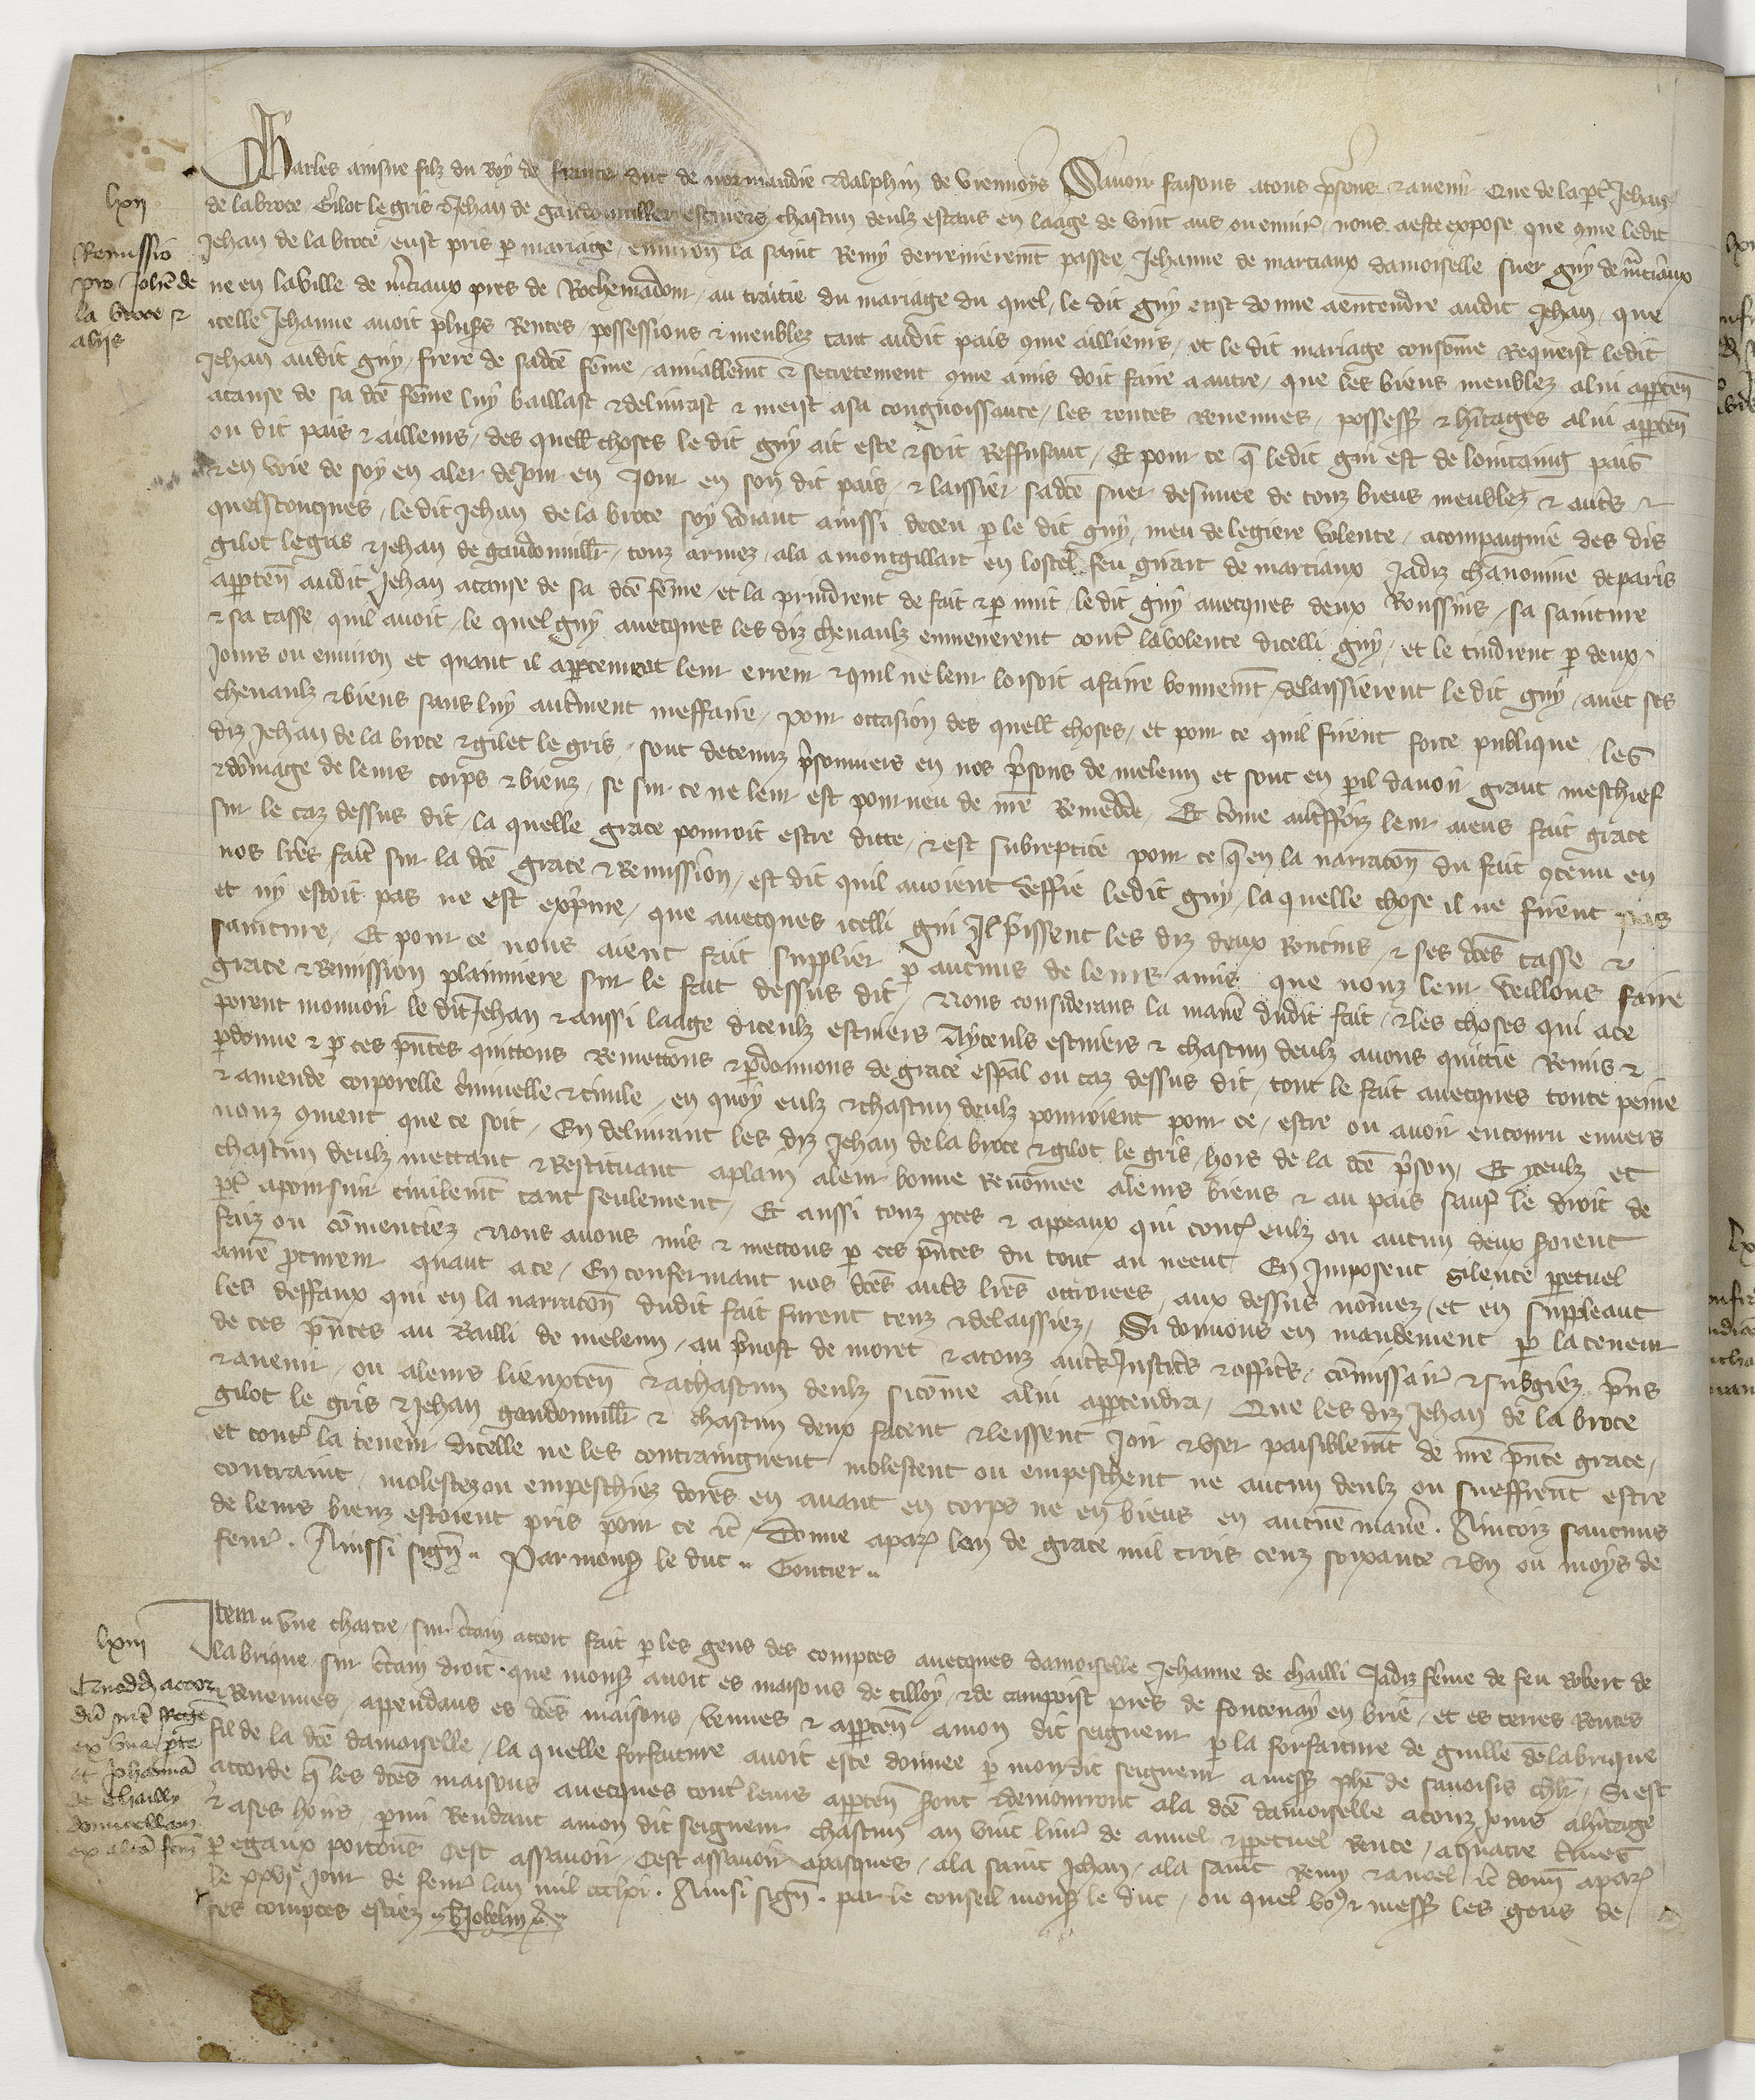 Charles ainsne filz du Roy de france duc de normandie & dalphin de viennoys Savoir faisons a tous p̃sens & avenir Que de la p̃t Jehan
de la broce Gilot le gris & Jehan de gaudonviller escuiers chascun deulz estans en laage de vint ans ou envirõ nous a este expose que cõme ledit
lxij
Jehan de la broce eust pris p mariage environ la saint Remy derrenierem̃t passee Jehanne de marciaux damoiselle suer guy de m̃ciaux
Remissio
pro Joh̃e de
la broce &
aliis
ne en la ville de m̃ciaux pres de Rochemadour au traictie du mariage du quel le dit guy eust donne a entendre audit Jehan que
icelle Jehanne avoit plus̃s Rentes possessions & meublez tant audit pais cõme ailleurs et le dit mariage consõme Requeist ledit
Jehan audit guy frere de sad̃ce fẽme amiablem̃t & secretement cõme amis doit faire a autre que les biens meublez a lui apparten̄
a cause de sa d̃ce fẽme luy baillast & delivrast & meist a sa congnoissance les rentes Revenues possess̃ & h̃itages a lui apparten̄
ou dit pais & ailleurs des quell choses le dit guy ait este & soit Reffusant Et pour ce q̃ ledit gui est de lointaing pais
& en voie de soy en aler de jour en Jour en son dit pais & laissier sad̃ce suer desnuee de touz biens meublez & aut̃s &
quelzconques le dit Jehan de la broce soy voiant ainssi deceu p le dit guy meu de legiere volente acompaignie des dis
gilot le gris & Jehan de gaudonvill̃r touz armez ala a montgillart en lostel feu girart de marciaux Jadiz chanoinne de paris
apparten̄ audit Jehan a cause de sa d̃ce fẽme et la prindrent de fait & p nuit le dit guy avecques deux Roussins sa sainture
& sa tasse quil avoit le quel guy avecques les diz chevaulz emmenerent cont̃ la volente dicelli guy et le tindrent p deux
Jours ou environ et quant il appercurent leur erreur & quil ne leur loisoit a faire bonnem̃t delaissierent le dit guy avec ses
chevaulz & biens sans luy aut̃ment meffaire pour occasion des quell choses et pour ce quil firent force publique les
diz Jehan de la broce & gilet le gris sont detenuz p̃sonniers en nos p̃sons de meleun et sont en peril davoir grant meschief
& dõmage de leurs corps & bienz se sur ce ne leur est pourveu de n̄re Remedde Et cõme aut̃ffoiz leur aiens fait grace
sur le caz dessus dit la quelle grace pourroit estre ditte & est subreptice pour ce q̃ en la narracõn du fait cõtenu en
nos l̃res faic̃t sur la d̃ce grace & Remission est dit quil avoient deffie ledit guy la quelle chose il ne firent pas
et ny estoit pas ne est exp̃me que avecques icelli gui Il p̃issent les diz deux Roncins & ses d̃ces tasse &
sainture Et pour ce nous aient fait supplier p aucuns de leurs amis que nouz leur veillons faire
grace & Remission plainniere sur le fait dessus dit Nous considerans la manie dudit fait & les choses qui a ce
porent mouvoir le dit Jehan & aussi laage diceulz escuiers A yceuls escuiers & chascun deulz avons quittie Remis &
pdonne & p ces p̃ntes quittons Remettons & pdonnons de grace esp̃al ou caz dessus dit tout le fait avecques toute peine
& amende corporelle c̃minelle & civile en quoy eulz & chascun deulz pourroient pour ce estre ou avoir encouru envers
nouz cõment que ce soit En delivrant les diz Jehan de la broce & gilot le gris hors de la d̃ce p̃son Et yceulz et
chascun deulz mettant & Restituant a plain a leur bonne Renõmee a leurs biens & au pais sauf le droit de
p̃t a poursuir civilem̃t tant seulement Et aussi touz p̃ces & appeaux qui cont̃ eulz ou aucun deux s̃oient
faiz ou cõmenciez Nous avons mis & mettons p ces p̃ntes du tout au neent En Imposent silence ppetuel
a n̄re p̃cureur quant a ce En confermant nos d̃ces aut̃s l̃res octroiees aux dessus nõmez et en suppleant
les deffaux qui en la narracõn dudit fait furent teuz & delaissiez Si donnons en mandement p la teneur
de ces p̃ntes au Bailli de meleun au p̃vost de moret & a touz aut̃s Justic̃s & offic̃s cõmissair̃ & subgiez p̃ns
& avenir ou a leurs lieuxten̄ & a chascun deulz sicõme a lui appartendra Que les diz Jehan de la broce
gilot le gris & Jehan gaudonvill̃r & chascun deux facent & leissent Joir & user paisiblem̃t de n̄re p̃nte grace
et cont̃ la teneur dicelle ne les contraingnent molestent ou empeschent ne aucun deulz ou sueffrent estre
contraint molestez ou empeschiez dores en avant en corps ne en biens en aucune maniere. Aincois saucuns
de leurs bienz estoient pris pour ce &c̃ Donne a par̃ lan de grace mil trois cenz soixante & un ou moys de
fevr̃. Ainssi sign̄ Par mons̃ le duc Gontier
Item une chartre sur c̃tain accort fait p les gens des comptes avecques damoiselle Jehanne de chailli Jadiz fẽme de feu Robert de
lxiij
la brique sur c̃tain droit que mons̃ avoit es maisons de tilloy & de campoist pres de fontenay en brie et es terres Rentes
& Revenues appendans es d̃ces maisons venues & apparten̄ a mon dit seigneur p la forfaiture de guille de la brique
fil de la d̃ce damoiselle la quelle forfaiture avoit este donnee p mon dit seigneur a mess̃ ph̃e de savoisis ch̃lr Si est
ex una p̃te
et Johannã
de Chailly
domicellam
ex altã
accorde q̃ les d̃ces maisons avecques tout̃ leurs apparten̄ s̃ont & demourront a la d̃ce damoiselle a touz Jours a h̃itage
& a ses hoirs pmi Rendant a mon dit seigneur chascun an vint livr̃ de annuel & ppetuel Rente a quatre t̃mes
p egaux porcons Cest assavoir Cest assavoir a pasques a la saint Jehan a la saint Remy & a noel &c̃ donn̄ a par̃
le xxvi Jour de fevr̃ lan mil ccclxi. Ainsi sign̄. par le conseil mons̃ le duc ou quel vo9 & mess̃ les gens de
ses comptes estiez